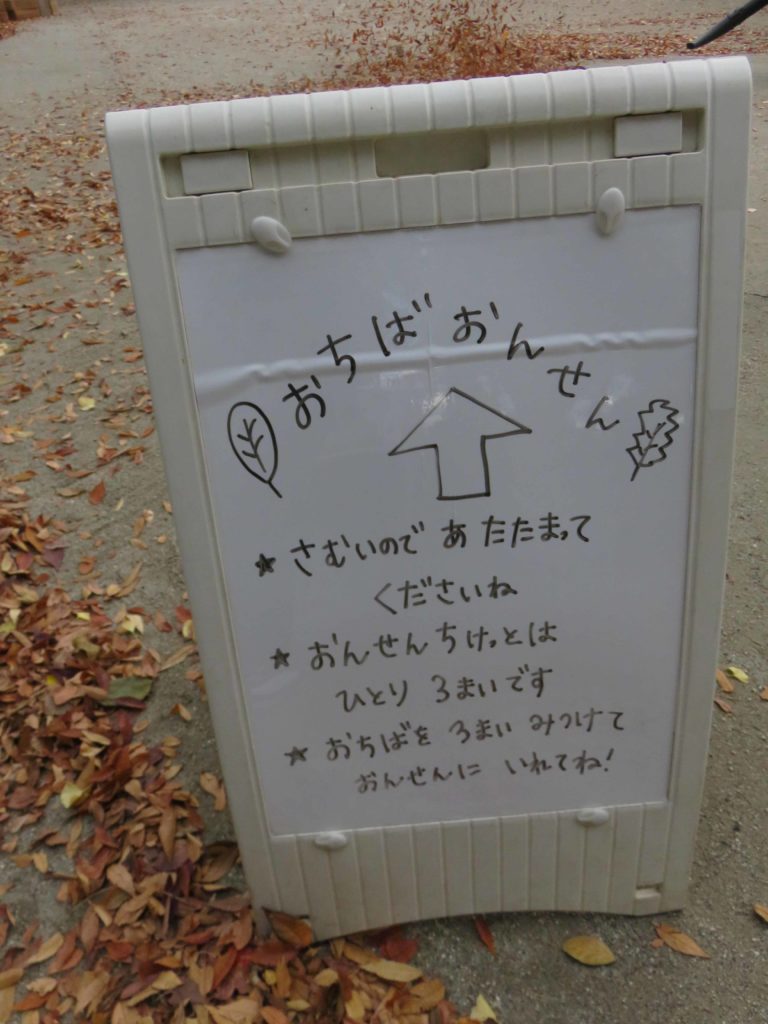 おちばおんせん
★ さむいので あたたまって
くださいね
★ おんせんちけっとは
ひとり 3まいです
★ おちばを 3まい みつけて
おんせんに いれてね!